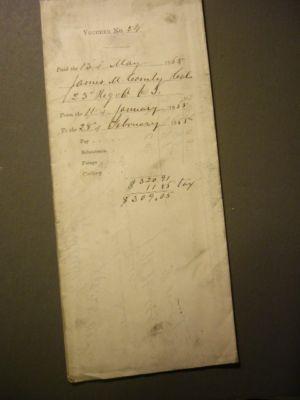 Voucher No. 54
Paid the 13 of May 1865
James M Comly Col
23d Reg O V I
From the 11 of January 1865
To the 28 of February 1865
Pay
Subsistence
Forage
Clothing
$ 320.91
11.85 tax
$ 309.05